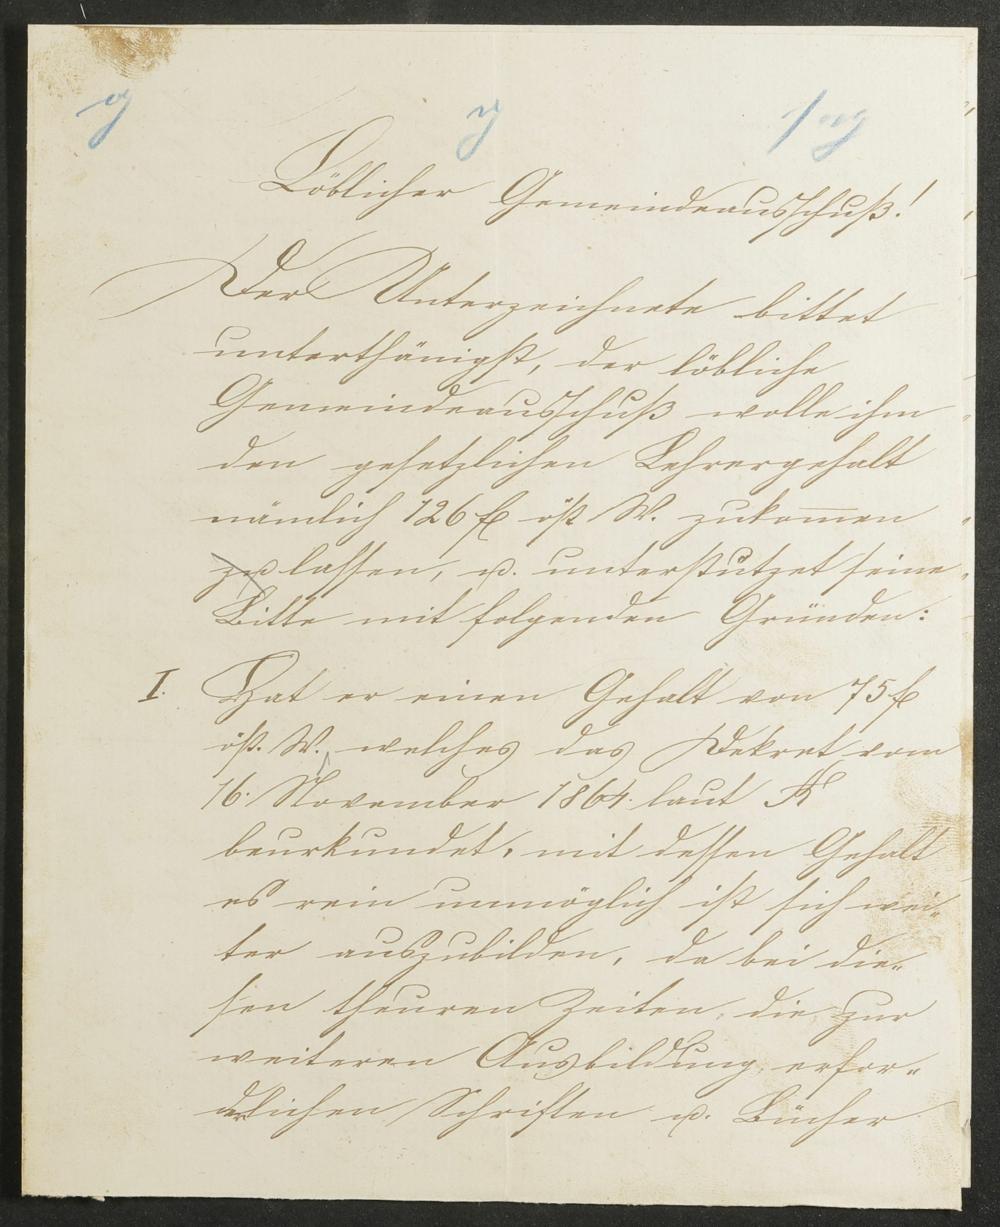 Löblicher Gemeindeausschuß!
Der Unterzeichnete bittet
unterthänigst, der löbliche
Gemeindeausschuß wolle ihm
den gesetzlichen Lehrergehalt
nämlich 126 f öst W. zukom̅en
zu lassen, u. unterstützet seine
Bitte mit folgenden Gründen:
I. Hat er einen Gehalt von 75 f
öst. W., welches das Dekret vom
16. November 1864. laut
beurkundet, mit dessen Gehalt
es rein unmöglich ist sich wei-
ter auszubilden, da bei die-
sen theuren Zeiten, die zur
weiteren Ausbildung erfor-
derlichen Schriften u. Bücher